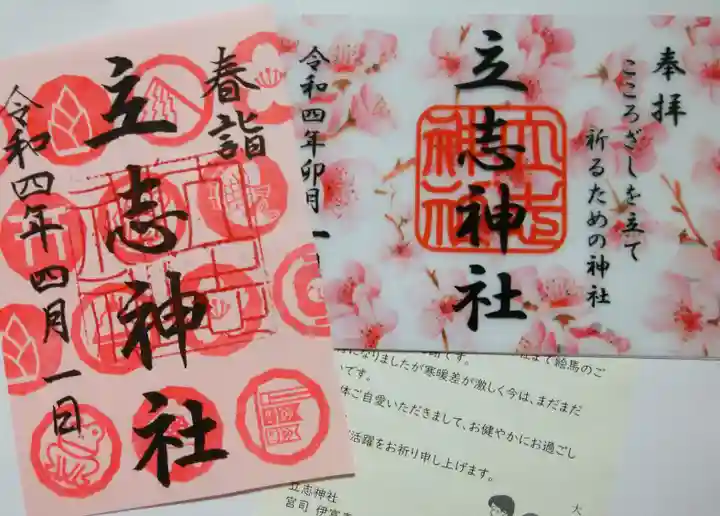 春詣
立志神社
令和四年四月一日
奉拝
こころざしを立て
祈るための神社
立志神社
立志神社
令和四年卯月一
です。
まで絵馬のご
になりましたが寒暖差が激しく今は、まだまだ
いです。
体ご自愛いただきまして、お健やかにお過ごし
活躍をお祈り申し上げます。
立志神社
宮司
大